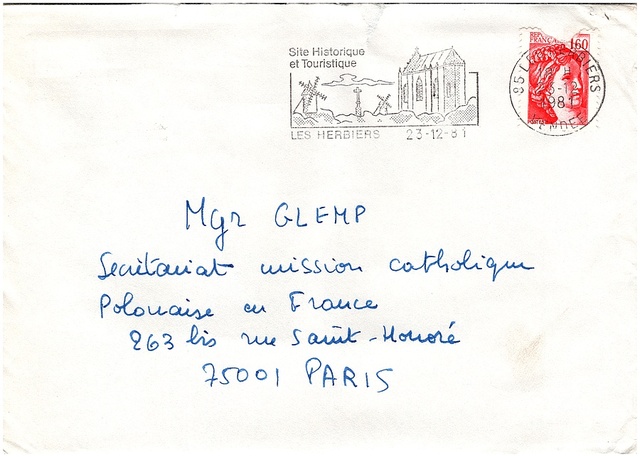 Site Historique
et Touristique
LES HERBIERS 23-12-81
REP. FRANÇAISE 1,60
85 LES HERBIERS
1981
VENDEE
Mgr GLEMP
Secrétariat mission catholique
Polonaise en France
263 bis rue Saint-Honoré
75001 PARIS